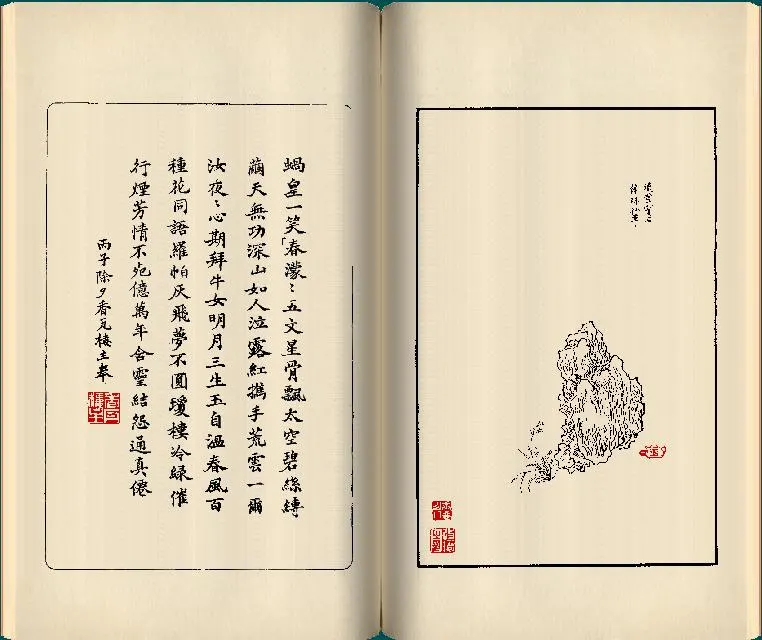 蝸皇一笑春濛〻五文星骨飄太空碧絲縛
繭天無功深山如人泣露紅攜手荒雲一爾
汝夜〻心期拜牛女明月三生玉自溫春風百
種花同語羅帕灰飛夢不圓瓊樓冷綠催
行煙芳情不死億萬年含靈結怨通真僊
丙子除夕香瓦樓主奉